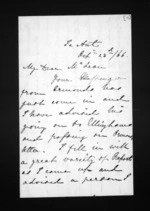 Te Aute
Sep 22nd /68.
My Dear McLean
Your Messenger
from Ormonds has
just come in and
I have advised his
going on to Ellinghams
and passing on
I fell in with
a great variety of Reports
as I came up and
advised a person I